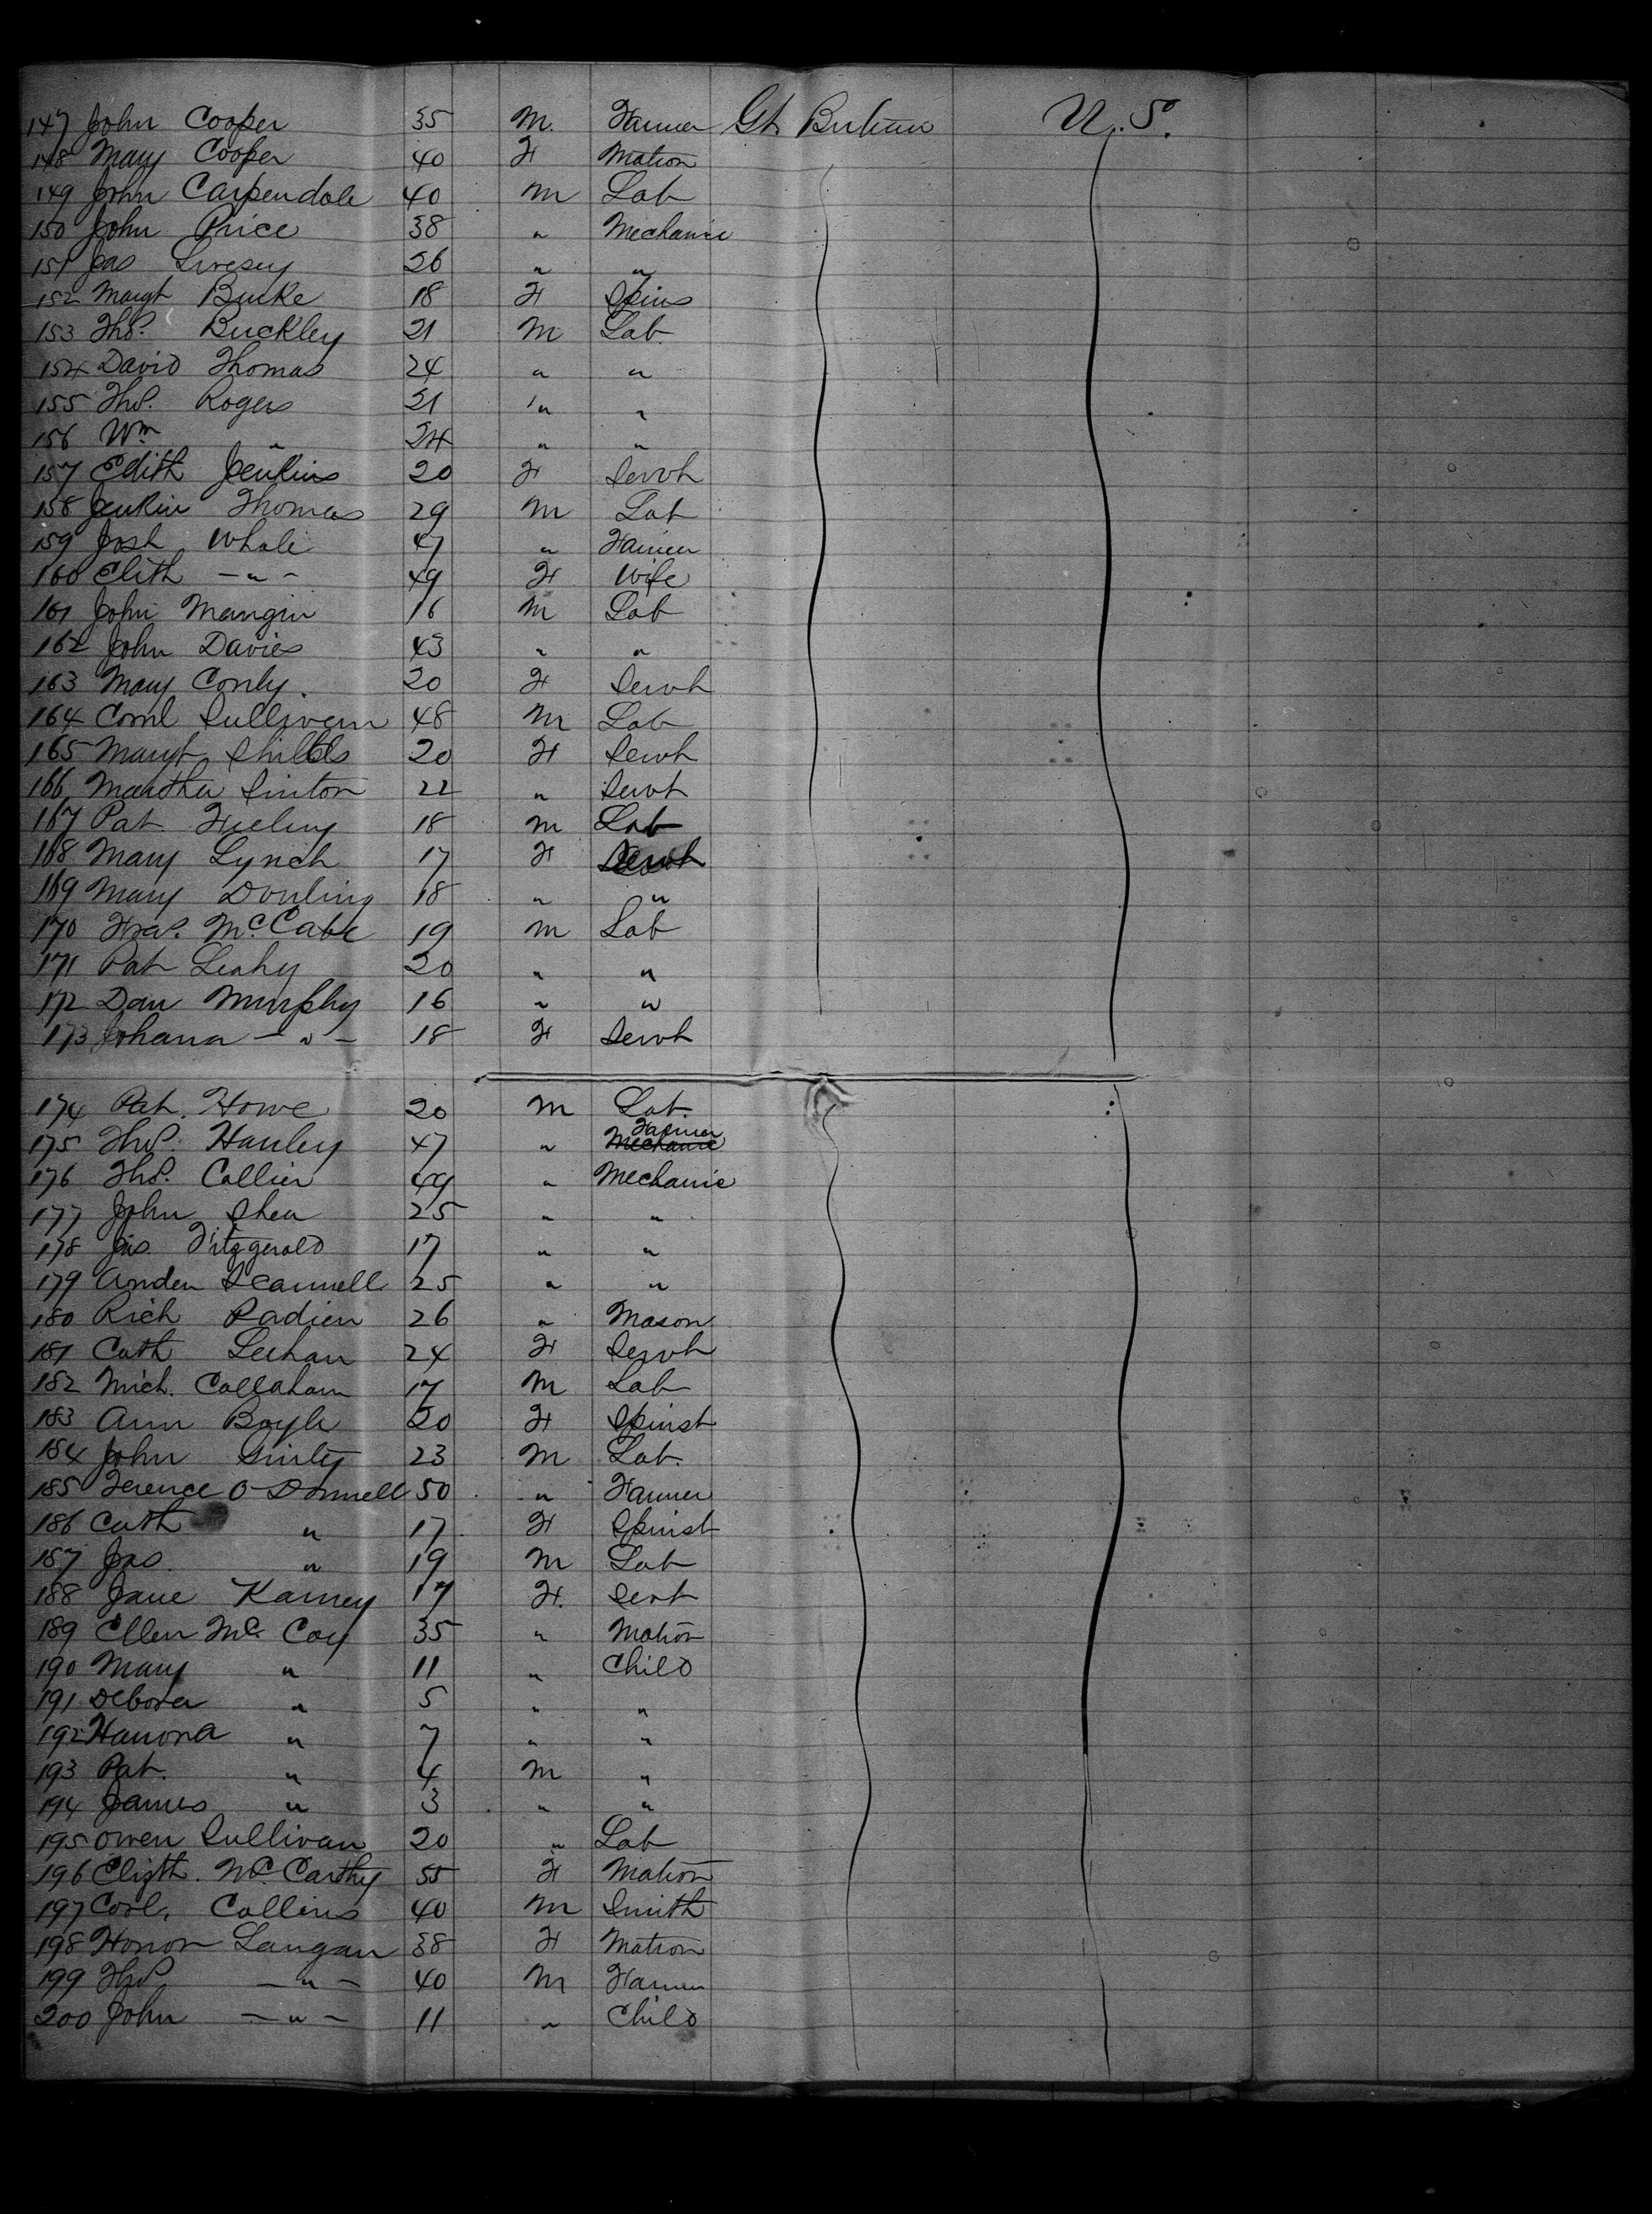 147 John Cooper 35 M. Farmer Gt. Britain U.S.
148 Mary Cooper 40 F Matron
149 John Carpendale 40 M Lab
150 John Price 38 " Mechanic
151 Jas Livesey 26 " "
152 Margt Burke 18 F Spins
153 Thos. Buckley 21 M Lab.
154 David Thomas 24 " "
155 Thos. Rogers 21 " "
156 Wm " 24 " "
157 Edith Jenkins 20 F Servt
158 Jenkin Thomas 29 M Lab
159 Josh Whale 47 " Farmer
160 Elith - " - 49 F Wife
161 John Mangin 16 M Lab
162 John Davies 43 " "
163 Mary Conly. 20 F Servt
164 Cornl Sullivan 48 M Lab
165 Margt Shields 20 F Servt
166 Martha Sinton 22 " Servt
167 Pat. 18 M Lab
168 Mary Lynch 17 F Servt
169 Mary Dowling 18 " "
170 Fras. McCabe 19 M Lab
171 Pat Leahy 20 " "
172 Dan Murphy 16 " "
173 Johana - " - 18 F Servt
174 Pat. Howe 20 M Lab.
175 Thos. Hanley 47 " Mechanic Farmer
176 Thos. Collier 49 " Mechanic
177 John Shea 25 " "
178 Jas. Fitzgerald 17 " "
179 Scannell 25 " "
180 Rich 26 " Mason
181 Cath Leehan 24 F Servt
182 Mich. Callaham 17 M Lab
183 Ann Boyle 20 F Spinst
184 John Ginty 23 M Lab.
185 Terence O-Donnell 50 " Farmer
186 Cath " 17 F Spinst
187 Jas. " 19 M Lab
188 Jane Karney 17 F. Servt
189 Ellen Mc. Coy 35 " Matron
190 Mary " 11 " Child
191 Debora " 5 " "
192 Hanora " 7 " "
193 Pat. " 4 M "
194 James " 3 " "
195 Owen Sullivan 20 " Lab
196 Elizth. McCarthy 55 F Matron
197 Corl. Collins 40 M Smith
198 Honor Langan 38 F Matron
199 Thos - " - 40 M Farmer
200 John - " - 11 " Child